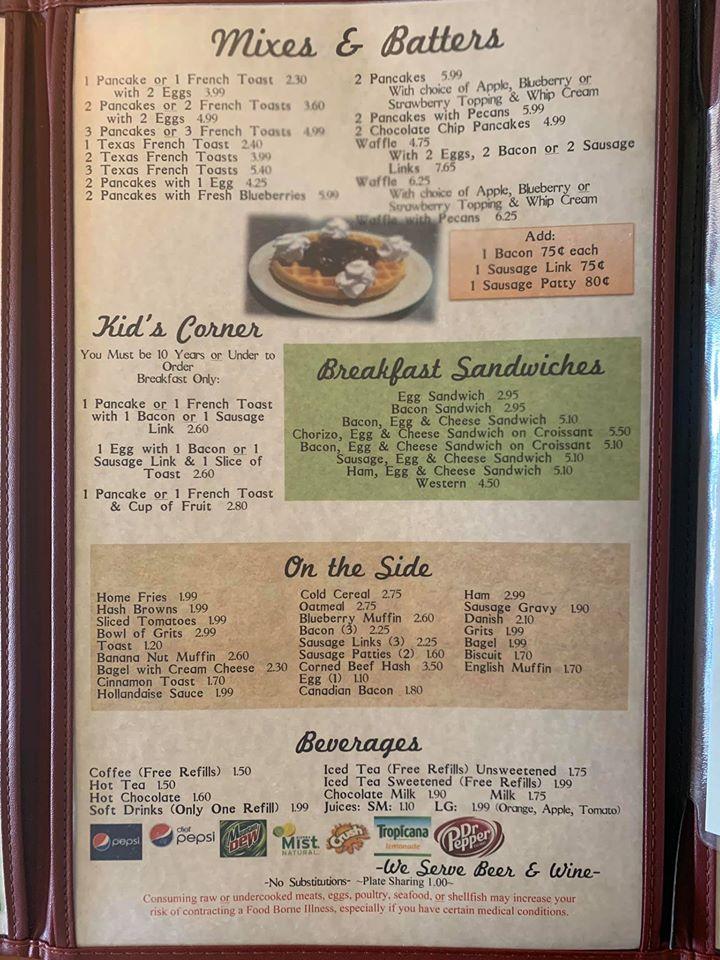 Mixes & Batters
1 Pancake or 1 French Toast 2.30
with 2 Eggs 3.99
2 Pancakes or 2 French Toasts 3.60
with 2 Eggs 4.99
3 Pancakes or 3 French Toasts 4.99
1 Texas French Toast 2.40
2 Texas French Toasts 3.99
3 Texas French Toasts 5.40
2 Pancakes with 1 Egg 4.25
2 Pancakes with Fresh Blueberries 5.99
2 Pancakes 5.99
With choice of Apple, Blueberry or
Strawberry Topping & Whip Cream
2 Pancakes with Pecans 5.99
2 Chocolate Chip Pancakes 4.99
Waffle 4.75
With 2 Eggs, 2 Bacon or 2 Sausage
Links 7.65
Waffle 6.25
With choice of Apple, Blueberry or
Strawberry Topping & Whip Cream
Waffle with Pecans 6.25
Add:
1 Bacon 75¢ each
1 Sausage Link 75¢
1 Sausage Patty 80¢
Kid's Corner
You Must be 10 Years or Under to
Order
Breakfast Only:
1 Pancake or 1 French Toast
with 1 Bacon or 1 Sausage
Link 2.60
1 Egg with 1 Bacon or 1
Sausage Link & 1 Slice of
Toast 2.60
1 Pancake or 1 French Toast
& Cup of Fruit 2.80
Breakfast Sandwiches
Egg Sandwich 2.95
Bacon Sandwich 2.95
Bacon, Egg & Cheese Sandwich 5.10
Chorizo, Egg & Cheese Sandwich on Croissant 5.50
Bacon, Egg & Cheese Sandwich on Croissant 5.10
Sausage, Egg & Cheese Sandwich 5.10
Ham, Egg & Cheese Sandwich 5.10
Western 4.50
On the Side
Home Fries 1.99
Hash Browns 1.99
Sliced Tomatoes 1.99
Bowl of Grits 2.99
Toast 1.20
Banana Nut Muffin 2.60
Bagel with Cream Cheese 2.30
Cinnamon Toast 1.70
Hollandaise Sauce 1.99
Cold Cereal 2.75
Oatmeal 2.75
Blueberry Muffin 2.60
Bacon (3) 2.25
Sausage Links (3) 2.25
Sausage Patties (2) 1.60
Corned Beef Hash 3.50
Egg (1) 1.10
Canadian Bacon 1.80
Ham 2.99
Sausage Gravy 1.90
Danish 2.10
Grits 1.99
Bagel 1.99
Biscuit 1.70
English Muffin 1.70
Beverages
Coffee (Free Refills) 1.50
Hot Tea 1.50
Hot Chocolate 1.60
Soft Drinks (Only One Refill) 1.99
Iced Tea (Free Refills) Unsweetened 1.75
Iced Tea Sweetened (Free Refills) 1.99
Chocolate Milk 1.90 Milk 1.75
Juices: SM: 1.10 LG: 1.99 (Orange, Apple, Tomato)
pepsi
diet pepsi
Mtn Dew
Mist
NATURAL
Crush
Tropicana
lemonade
Dr Pepper
-We Serve Beer & Wine-
-No Substitutions- ~Plate Sharing 1.00~
Consuming raw or undercooked meats, eggs, poultry, seafood, or shellfish may increase your
risk of contracting a Food Borne Illness, especially if you have certain medical conditions.